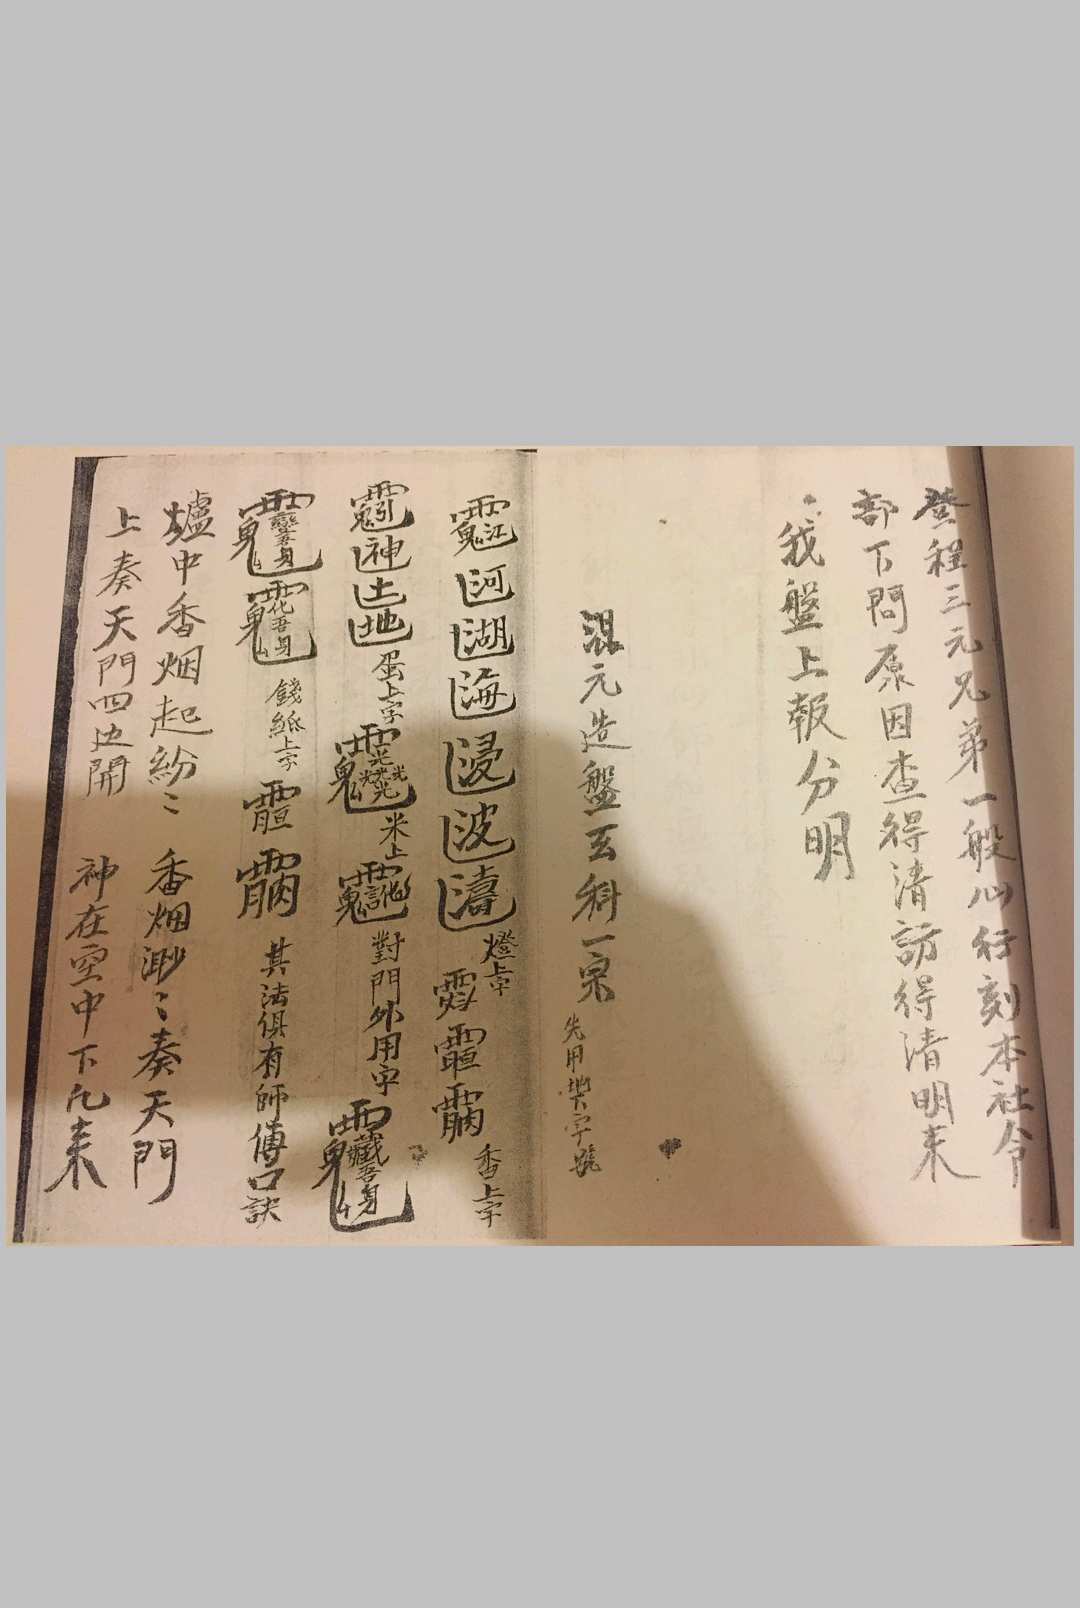 登程三元兄弟一般心行刻本社令
部下問原因查得清訪得清明来
我盤上報分明
混元造盤玄科一宗 先用樂字號
江河湖海浸波濤 燈上字 香上字
引神土地 蛋上字 米上 對門外用字 藏吾身
變吾身 化吾身 錢紙上字 其法俱有師傅口訣
爐中香烟起紛〻 香烟渺〻奏天門
上奏天門四边開 神在空中下凡来